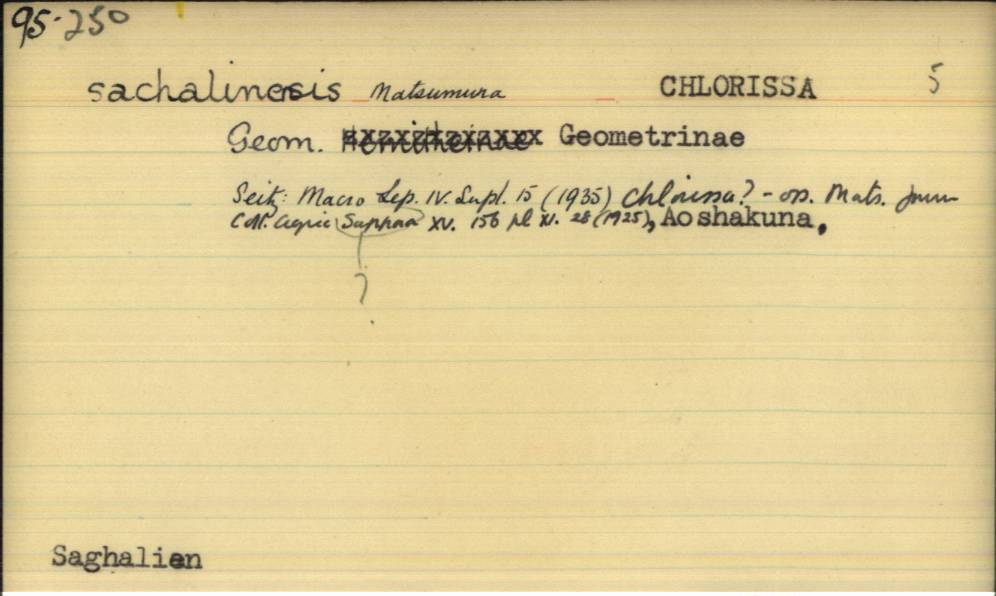 95-250
sachalinensis Matsumura CHLORISSA 5
Geom. Hemitheinae Geometrinae
Seitz: Macro Lep. IV. Supl. 15 (1935) Chlorissa? - op. Mats. Journ
Coll. Agric Suppnar XV. 156 pl XI. 28 (1925), Aoshakuna.
?
Saghalien